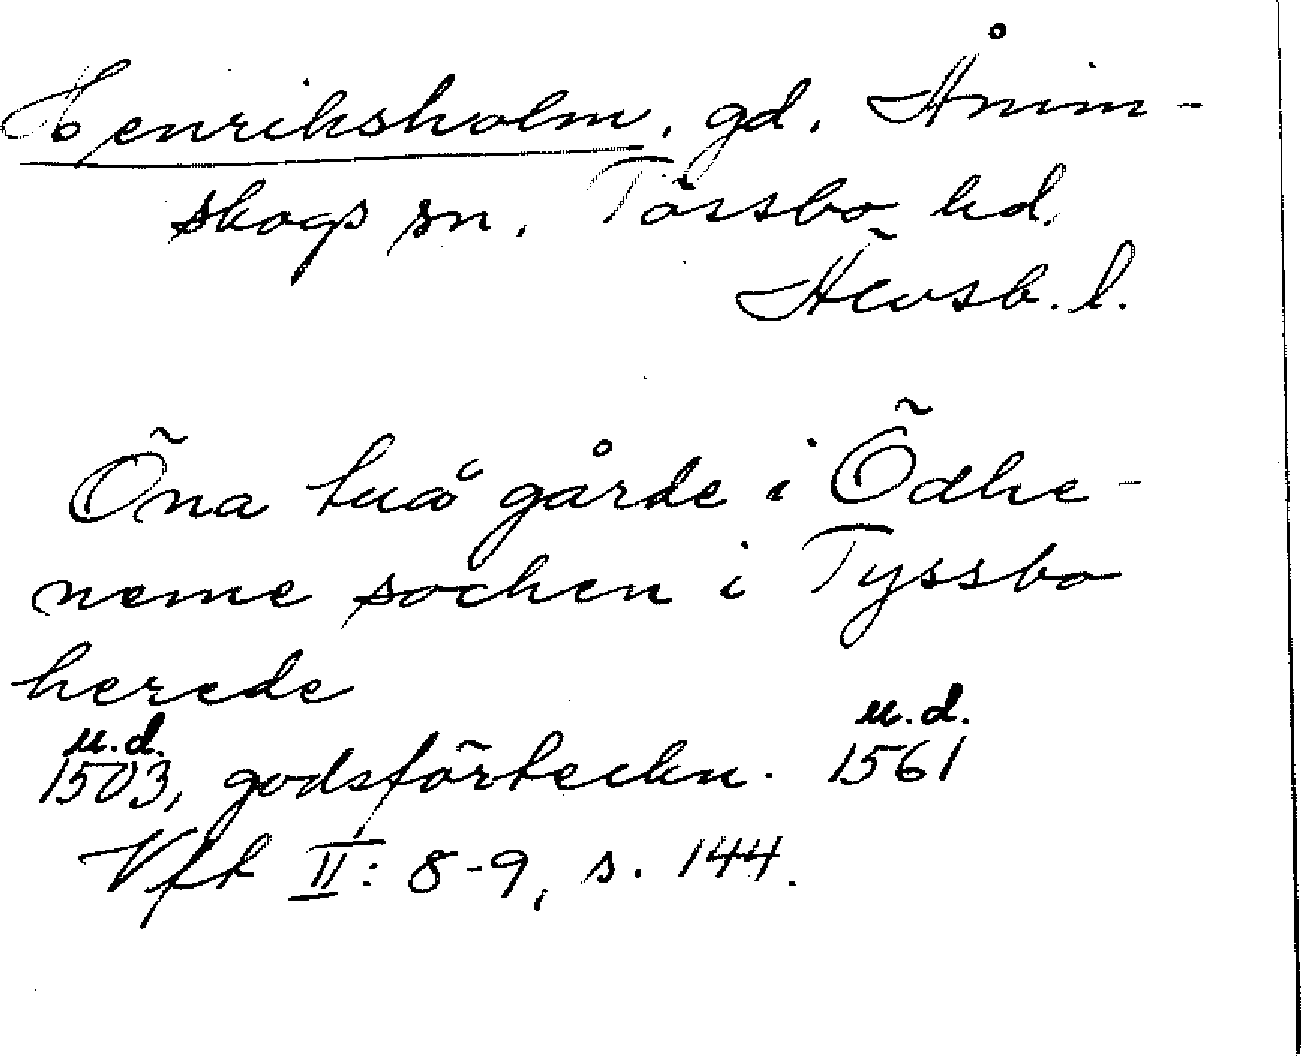 Henriksholm, gd, Ånim-
skogs sn, Tössbo hd.
Älvsb. l.
Öna tuå gårde i Ödhe-
neme sochen i Tyssbo
herede
u.d. u.d.
1503, godsförteckn. 1561
Vft II: 8-9, s. 144.